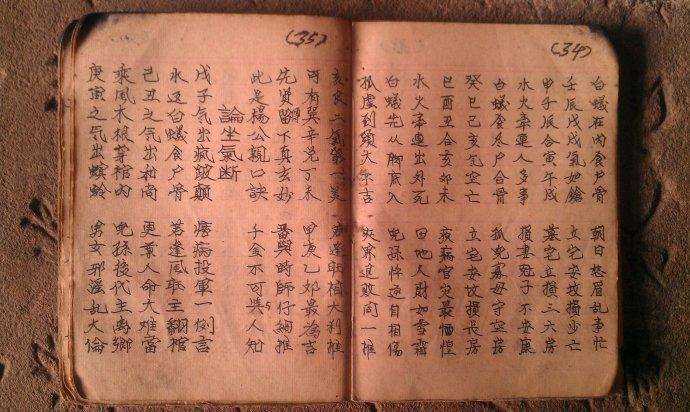 (34)
白蟻在內食尸骨 朝白怒眉亂事忙
壬辰戊戌氣如鎗 立宅安坟損少亡
甲子辰合寅午戌 墓宅立損三六房
水火年連人多事 損妻尅子不安康
白蟻食尽尸合骨 孤兒寡母守空房
癸巳己亥气空亡 立宅安坟損長房
巳酉丑合亥卯未 疾病官灾最惶惶
水火年連出外死 田地人財如雪霜
白蟻先从脚底入 兒孫悖逆自相傷
孤虛到頭大不吉 敗同一推
(35)
亥艮二氣第一美 若逢旺相大利推
丙有巽辛兑丁未 甲庚乙卯最為吉
先贤留下真玄妙 與時師仔細推
此是楊公親口訣 千金不可與人知
論坐氣断
戊子气出瘋跛顛 癆病投軍一例言
水返白蟻食尸骨 若逢風取主翻棺
己丑之气出和尚 更兼人命大难當
乘風木根芽棺內 兒孫換代主离鄉
庚寅之气出螟蛉 男女邪淫乱大倫